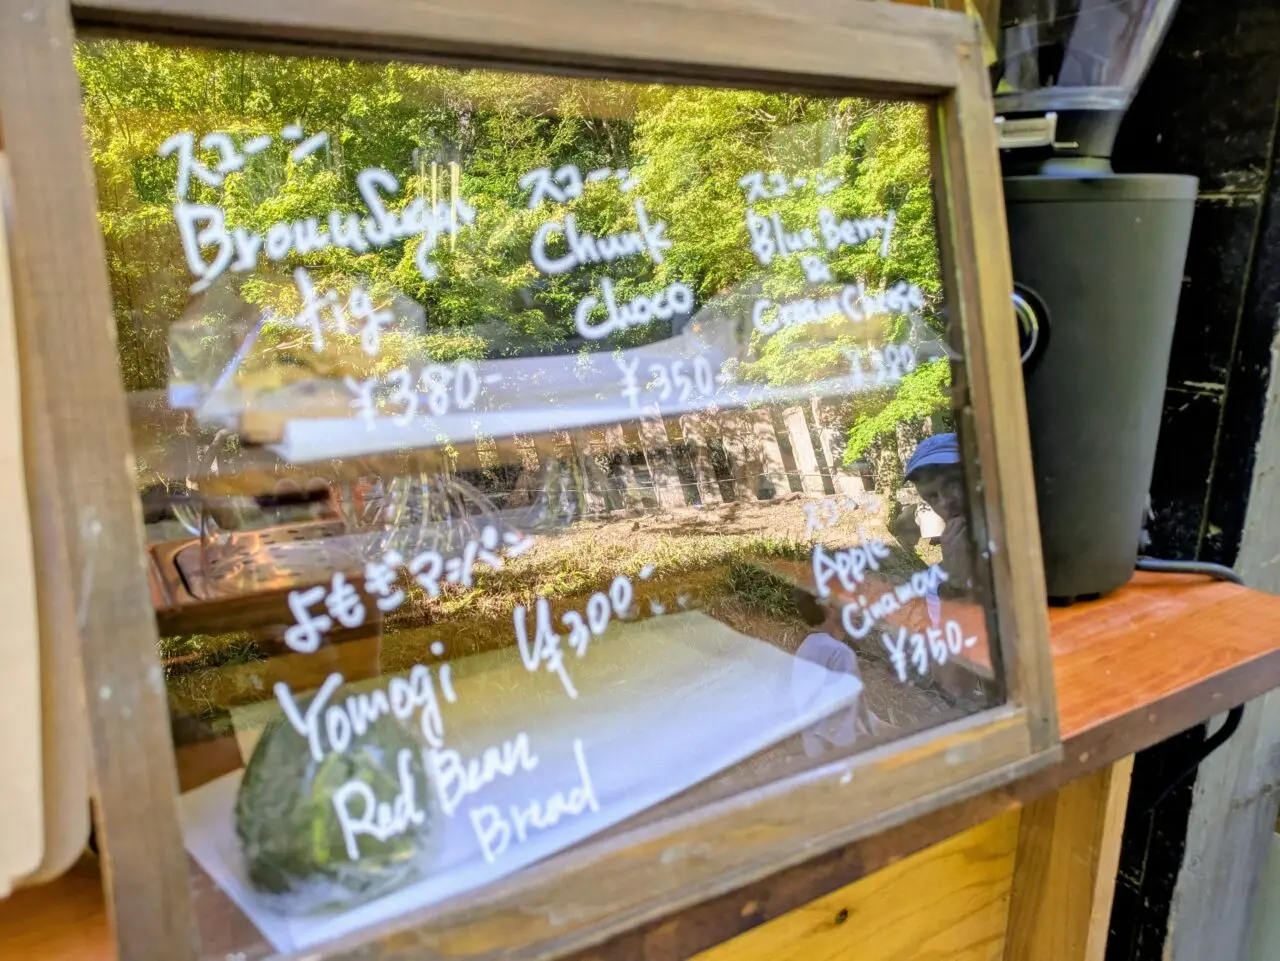 スコーン
Brown Sugar
fig
¥380-
スコーン
Chunk
Choco
¥350-
スコーン
Blue Berry
&
Cream Cheese
¥380-
よもぎアンパン
¥300-
Yomogi
Red Bean
Bread
スコーン
Apple
Cinamon
¥350-